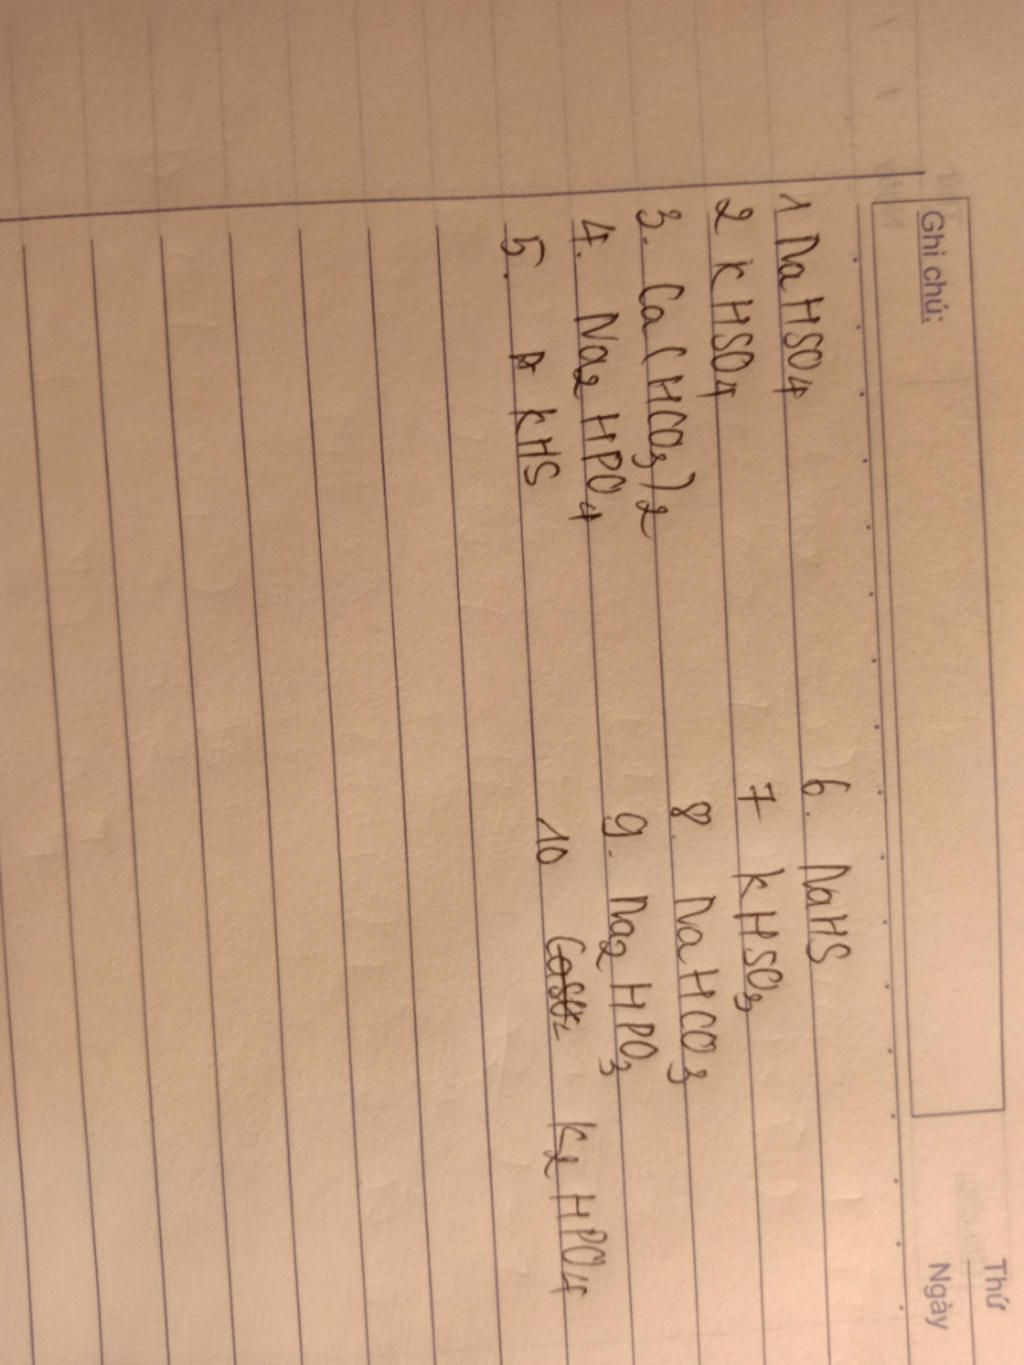 Thứ
Ngày
Ghi chú:
1 NaHSO4
2 KHSO4
3. Ca(HCO3)2
4. Na2HPO4
5. KHS
6. NaHS
7 KHSO3
8. NaHCO3
9. Na2HPO3
10 K2HPO4